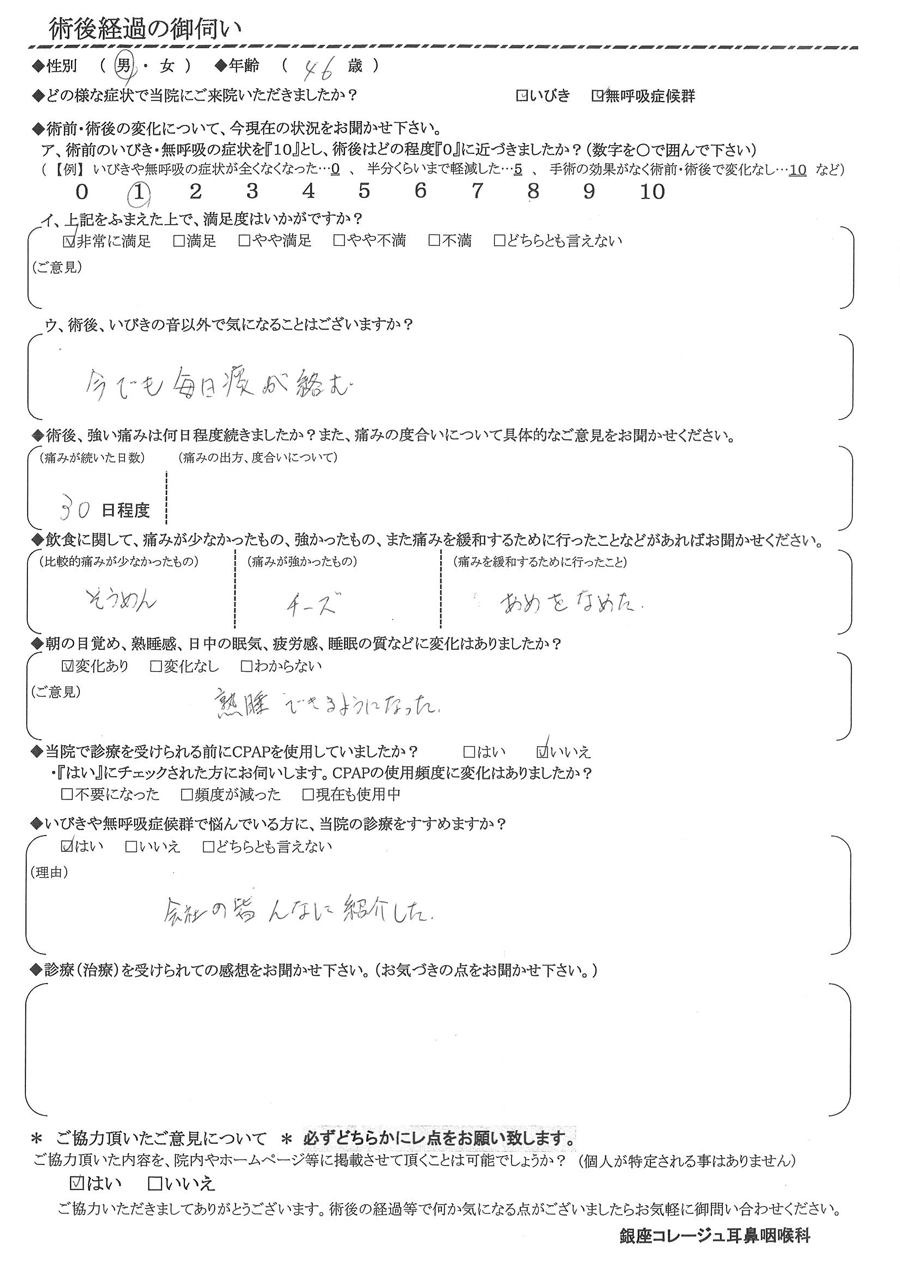 術後経過の御伺い
◆性別 （ 男 ・ 女 ） ◆年齢 （ 46 歳 ）
◆どの様な症状で当院にご来院いただきましたか？ ☑いびき ☑無呼吸症候群
◆術前・術後の変化について、今現在の状況をお聞かせ下さい。
ア、術前のいびき・無呼吸の症状を『10』とし、術後はどの程度『0』に近づきましたか？（数字を○で囲んで下さい）
（ 【例】 いびきや無呼吸の症状が全くなくなった…0 、 半分くらいまで軽減した…5 、 手術の効果がなく術前・術後で変化なし…10 など）
0 1 2 3 4 5 6 7 8 9 10
イ、上記をふまえた上で、満足度はいかがですか？
☑非常に満足 □満足 □やや満足 □やや不満 □不満 □どちらとも言えない
（ご意見）
ウ、術後、いびきの音以外で気になることはございますか？
今でも毎日痰が絡む
◆術後、強い痛みは何日程度続きましたか？また、痛みの度合いについて具体的なご意見をお聞かせください。
（痛みが続いた日数） （痛みの出方、度合いについて）
30 日程度
◆飲食に関して、痛みが少なかったもの、強かったもの、また痛みを緩和するために行ったことなどがあればお聞かせください。
（比較的痛みが少なかったもの） （痛みが強かったもの） （痛みを緩和するために行ったこと）
そうめん チーズ あめをなめた.
◆朝の目覚め、熟睡感、日中の眠気、疲労感、睡眠の質などに変化はありましたか？
☑変化あり □変化なし □わからない
（ご意見）
熟睡できるようになった.
◆当院で診療を受けられる前にCPAPを使用していましたか？ □はい ☑いいえ
・『はい』にチェックされた方にお伺いします。CPAPの使用頻度に変化はありましたか？
□不要になった □頻度が減った □現在も使用中
◆いびきや無呼吸症候群で悩んでいる方に、当院の診療をすすめますか？
☑はい □いいえ □どちらとも言えない
（理由）
会社の皆んなに紹介した.
◆診療（治療）を受けられての感想をお聞かせ下さい。（お気づきの点をお聞かせ下さい。）
＊ ご協力頂いたご意見について ＊ 必ずどちらかにレ点をお願い致します。
ご協力頂いた内容を、院内やホームページ等に掲載させて頂くことは可能でしょうか？ （個人が特定される事はありません）
☑はい □いいえ
ご協力いただきましてありがとうございます。術後の経過等で何か気になる点がございましたらお気軽に御問い合わせください。
銀座コレージュ耳鼻咽喉科